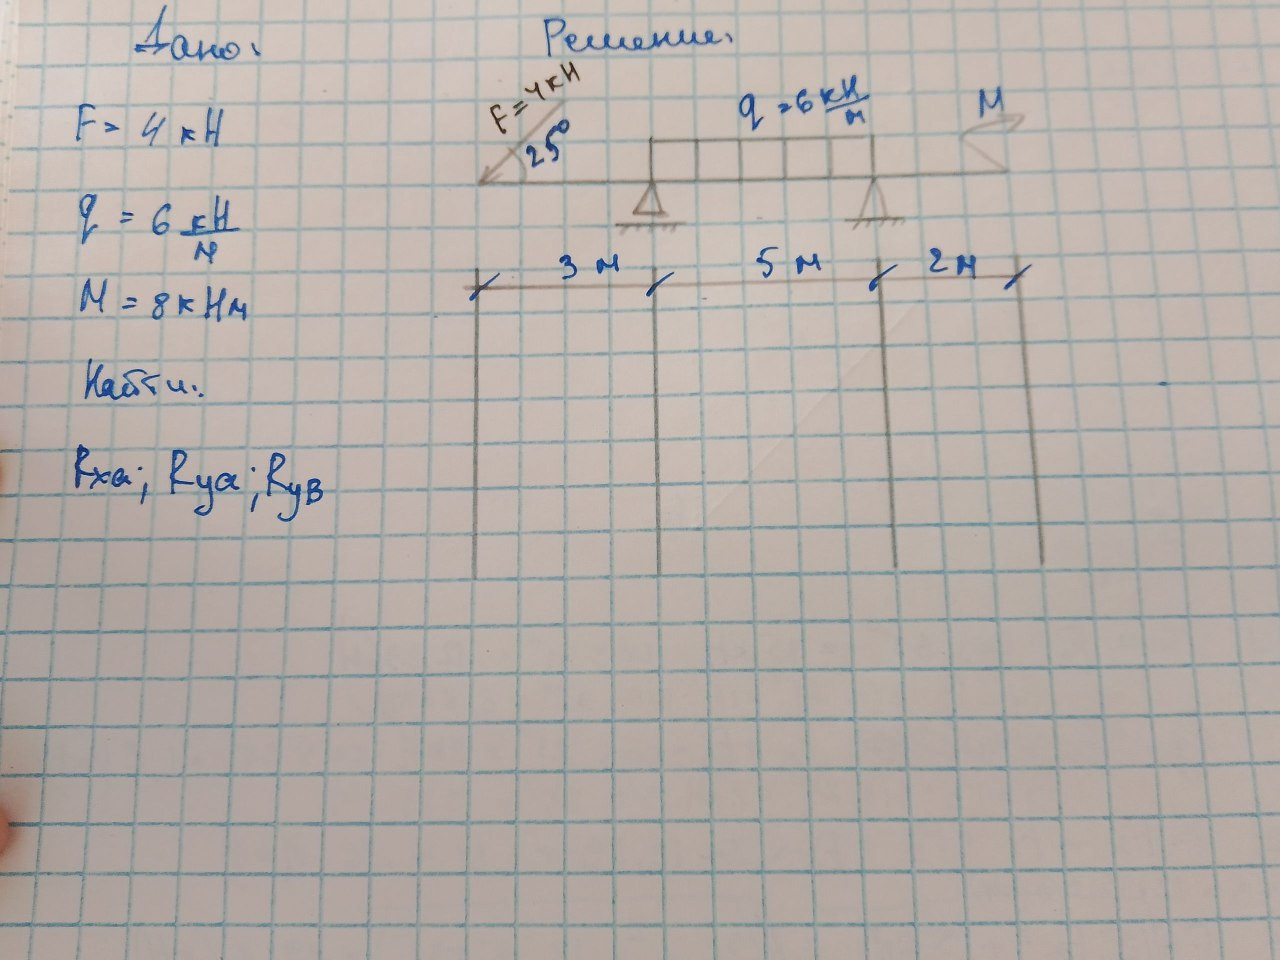 Дано:
F = 4 кН
q = 6 кН/м
М = 8 кНм
Найти:
Rxa; Rya; RyB
Решение:
F = 4 кН
25°
q = 6 кН/м
М
3 м 5 м 2 м